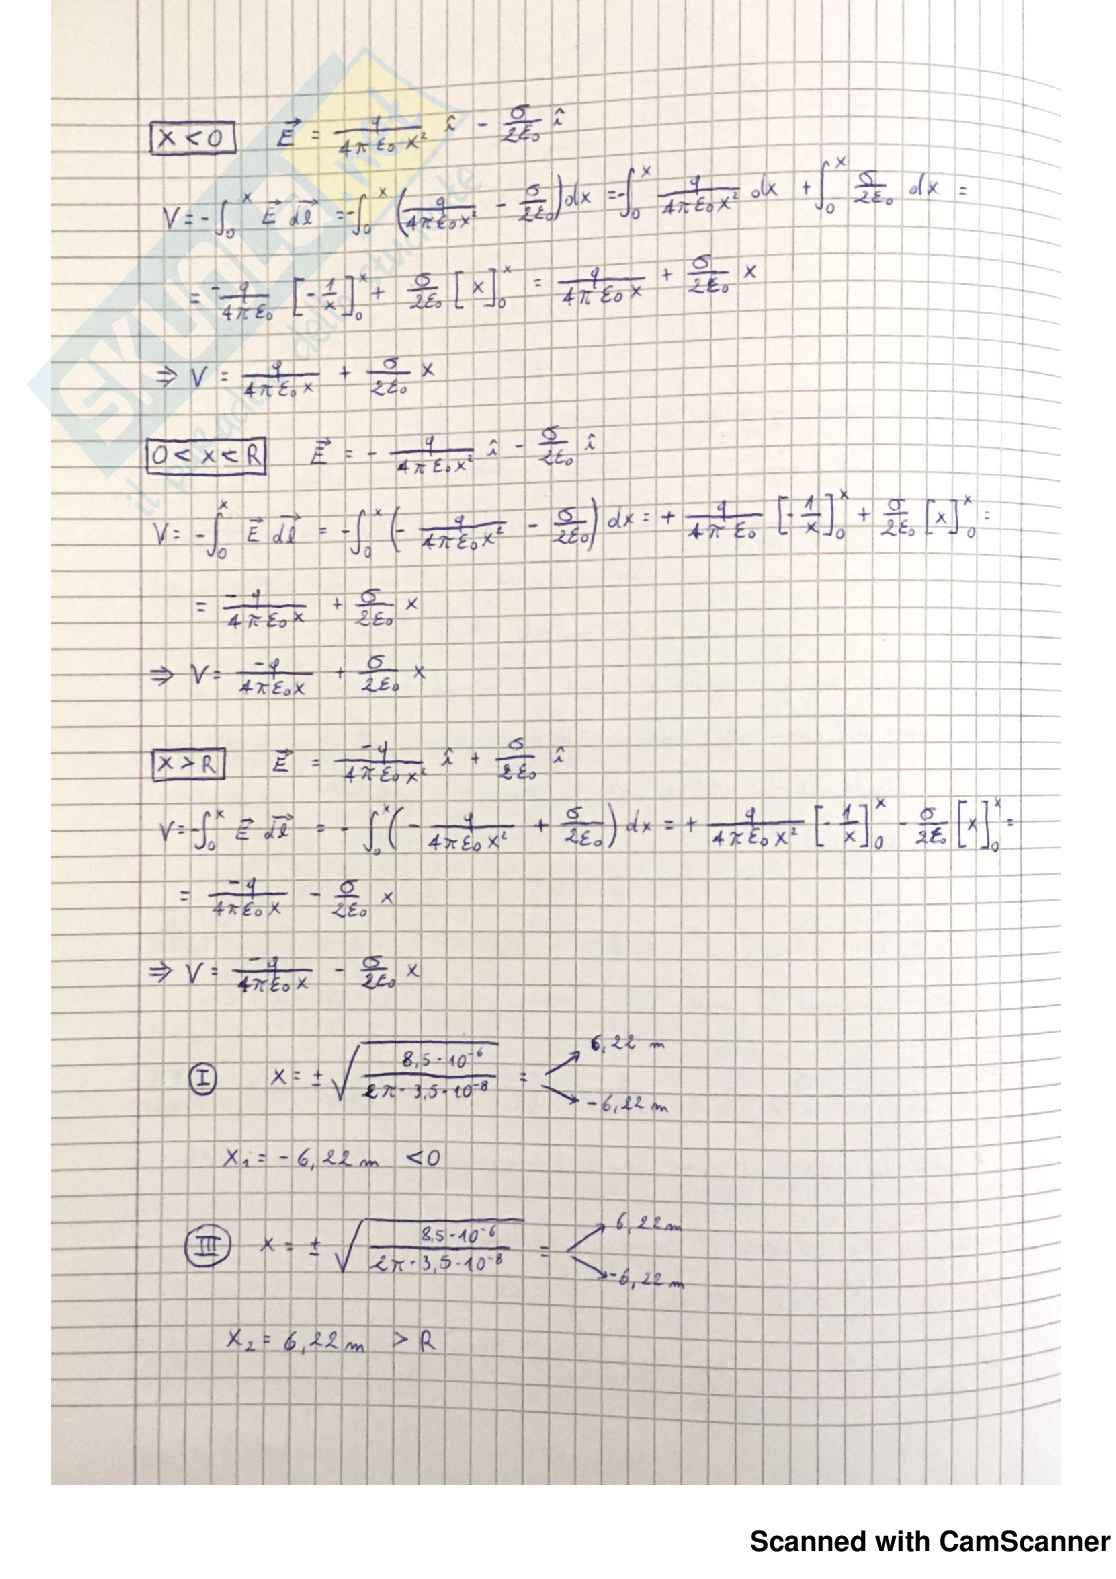 x < 0   E⃗ = q/(4πε₀x²) î − σ/(2ε₀) î
V = −∫₀ˣ E⃗ dl⃗ = −∫₀ˣ (q/(4πε₀x²) − σ/(2ε₀)) dx = −∫₀ˣ q/(4πε₀x²) dx + ∫₀ˣ σ/(2ε₀) dx =
= −q/(4πε₀) [−1/x]₀ˣ + σ/(2ε₀) [x]₀ˣ = q/(4πε₀x) + σ/(2ε₀) x
⇒ V = q/(4πε₀x) + σ/(2ε₀) x
0 < x < R   E⃗ = − q/(4πε₀x²) î − σ/(2ε₀) î
V = −∫₀ˣ E⃗ dl⃗ = −∫₀ˣ (− q/(4πε₀x²) − σ/(2ε₀)) dx = + q/(4πε₀) [−1/x]₀ˣ + σ/(2ε₀) [x]₀ˣ =
= −q/(4πε₀x) + σ/(2ε₀) x
⇒ V = −q/(4πε₀x) + σ/(2ε₀) x
x > R   E⃗ = −q/(4πε₀x²) î + σ/(2ε₀) î
V = −∫₀ˣ E⃗ dl⃗ = −∫₀ˣ (− q/(4πε₀x²) + σ/(2ε₀)) dx = + q/(4πε₀x²) [−1/x]₀ˣ − σ/(2ε₀) [x]₀ˣ =
= −q/(4πε₀x) − σ/(2ε₀) x
⇒ V = −q/(4πε₀x) − σ/(2ε₀) x
I   x = ± √(8,5·10⁻⁶/(2π·3,5·10⁻⁸)) = 6,22 m
−6,22 m
x₁ = −6,22 m < 0
III   x = ± √(8,5·10⁻⁶/(2π·3,5·10⁻⁸)) = 6,22 m
−6,22 m
x₂ = 6,22 m > R
Scanned with CamScanner